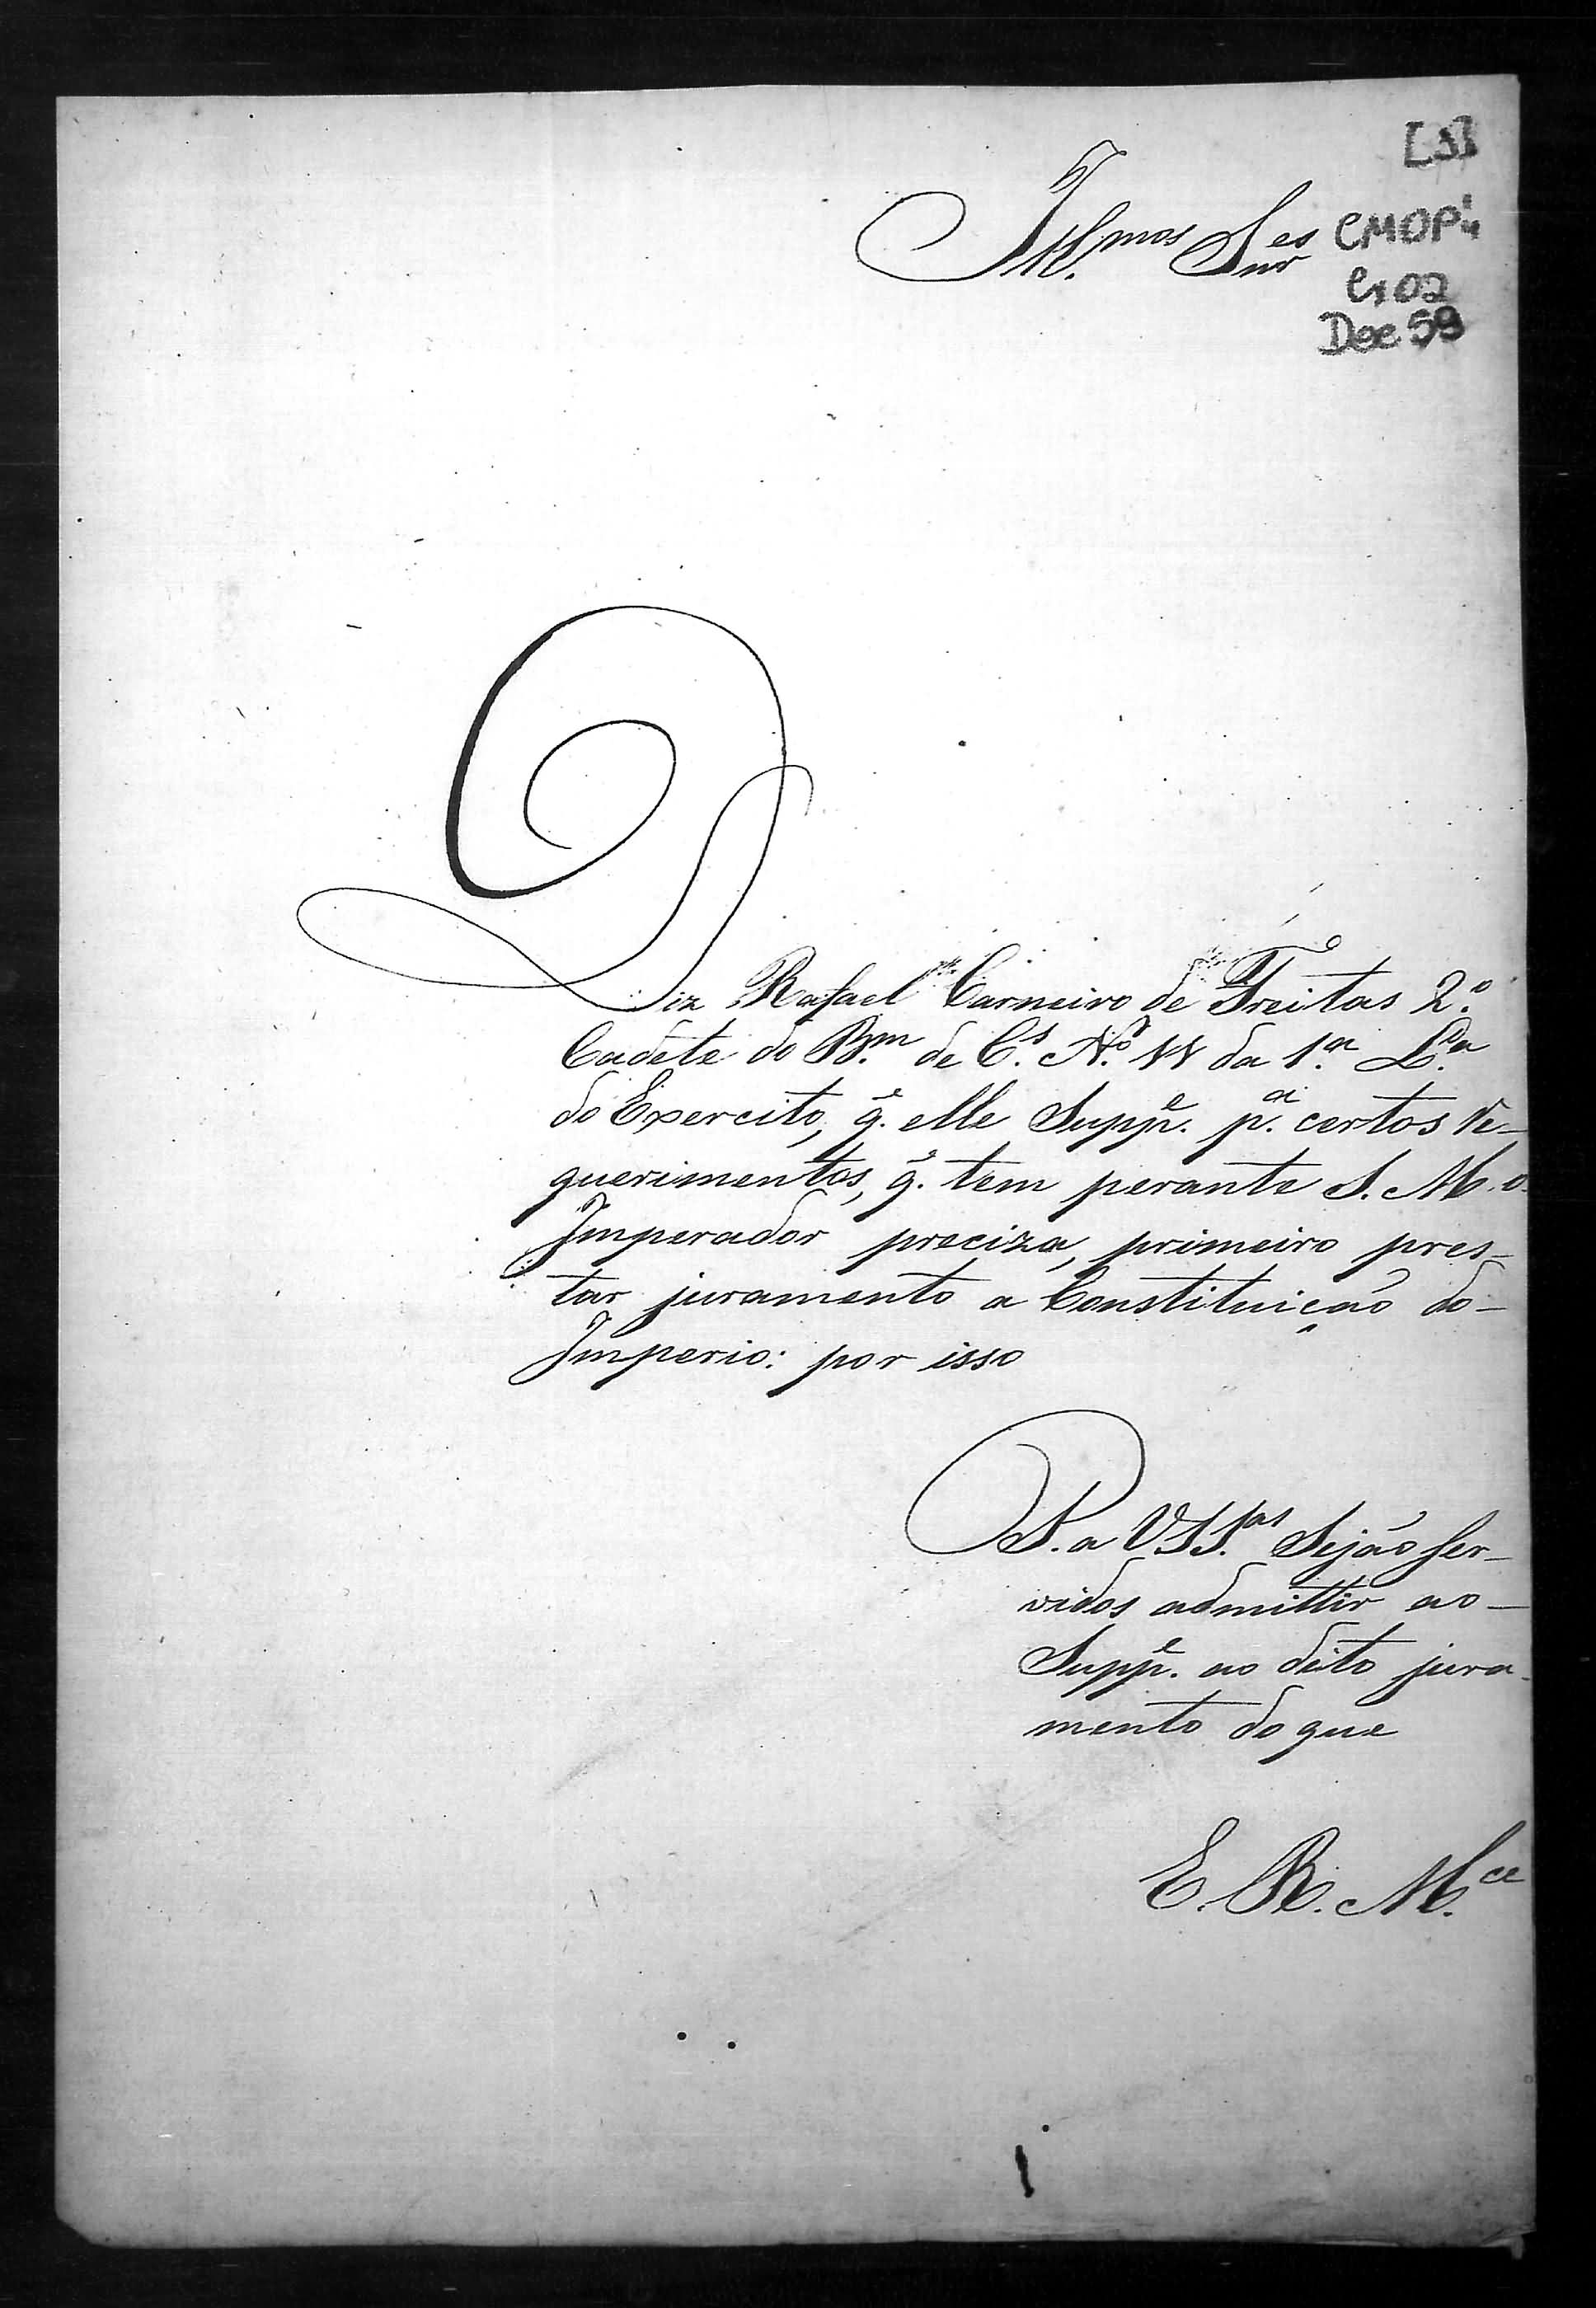 [3]
Ill.mos Snr.es CMOP
Cx 02
Doc 59
Diz Rafael Carneiro de Freitas 2.º
Cadete do B.m de C.s N.º 11 da 1.ª L.a
do Exercito, q.e elle Supp.e p.a certos re-
querimentos, q.e tem perante S. M. o
Imperador preciza, primeiro pres-
tar juramento a Constituição do-
Imperio: por isso
P. a V.SS.as Sejão ser-
vidos admittir ao-
Supp.e ao dito jura-
mento do que
E. R. M.ce